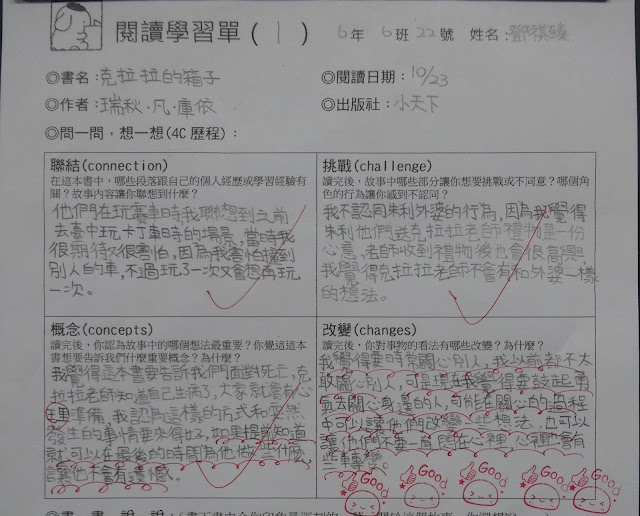 閱讀學習單(1) 6年6班22號 姓名:
◎書名:克拉拉的箱子 ◎閱讀日期:10/23
◎作者:瑞秋.凡.庫依 ◎出版社:小天下
◎問一問,想一想(4C歷程):
聯結(connection)
在這本書中,哪些段落跟自己的個人經歷或學習經驗有
關?故事內容讓你聯想到什麼?
他們在玩賽車時我聯想到之前
去臺中玩卡丁車時的場景,當時我
很期待又很害怕,因為我害怕撞到
別人的車,不過玩了一次又會想再玩
一次。
挑戰(challenge)
讀完後,故事中哪些部分讓你想要挑戰或不同意?哪個角
色的行為讓你感到不認同?
我不認同朱利外婆的行為,因為我覺得
朱利他們送克拉拉老師禮物是一份
心意,老師收到禮物後也會很高興
我覺得克拉拉老師不會有和外婆一樣
的想法。
概念(concepts)
讀完後,你認為故事中的哪個想法最重要?你覺這這本
書想要告訴我們什麼重要概念?為什麼?
我覺得這本書要告訴我們面對死亡,克
拉拉老師知道自己生病了,大家就會有心
理準備,我認為這樣的方式和突然
發生的事情要來得好,如果提前知道
就可以在最後的時間為他做些什麼,
讓他不會有遺憾。
改變(changes)
讀完後,你對事物的看法有哪些改變?為什麼?
我覺得要時常關心別人,我以前都不太
敢關心別人,可是現在我覺得要鼓起勇
氣去關心身邊的人,可能在關心的過程
中可以讓他們改變一些想法,也可以
讓他們不要一直悶在心裡,心裡也會有
些轉變。
Good Good Good Good Good